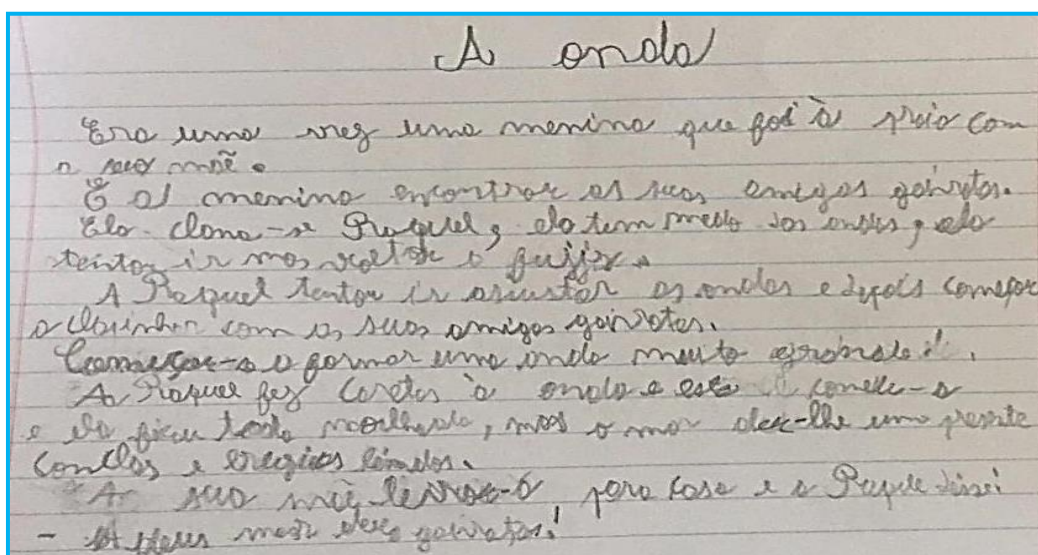 A onda
Era uma vez uma menina que foi à praia com
a sua mãe.
E a menina encontrar as suas amigas gaivotas.
Ela clama-se Raquel, ela tem medo das ondas, ela
tentar ir mas volta a fujir.
A Raquel tentar ir asustar as ondas e depois começar
a com as suas amigas gaivotas.
Começar-a a formar uma onda muito grande.
A Raquel fez caretas à onda e esta comeu-a
e ela ficou toda moolhada, mas o mar deu-lhe um presente
conclas e
A sua mãe levou-a para casa e a Raquel
- Adeus mar gaivotas!